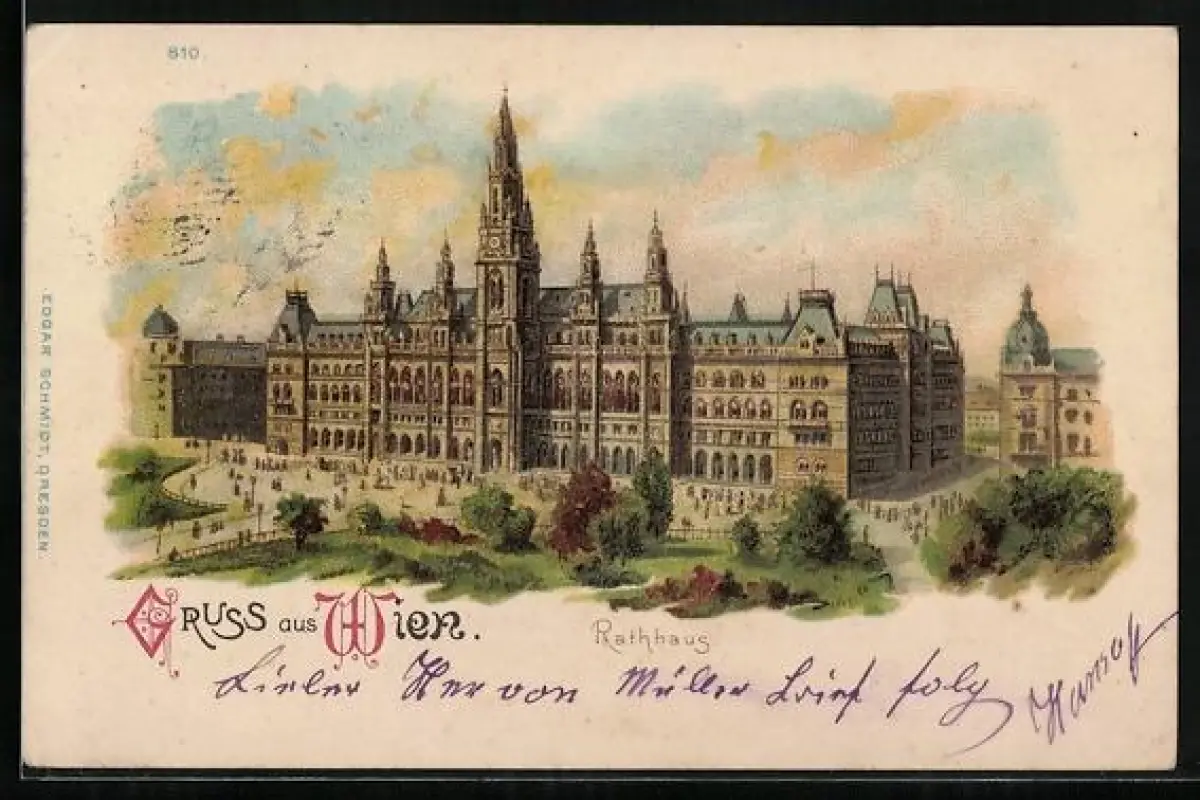 810.
EDGAR SCHMIDT, DRESDEN.
GRUSS aus Wien.
Rathhaus
Lieber Herr von Müller Brief folg